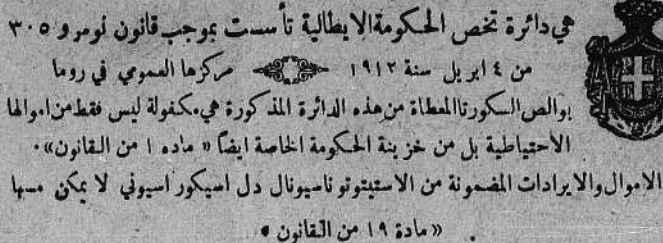 هي دائرة تخص الحكومة الايطالية تأسست بموجب قانون نومرو ٣٠٥
من ٤ ابريل سنة ١٩١٢ مركزها العمومي في روما
بوالص السكورتا المعطاة من هذه الدائرة المذكورة هي مكفولة ليس فقط من اموالها
الاحتياطية بل من خزينة الحكومة الخاصة ايضاً « ماده ١ من القانون» ٠
الاموال والايرادات المضمونة من الاستيتوتو ناسيونال دل اسيكوراسيوني لا يمكن مسها
«مادة ١٩ من القانون »